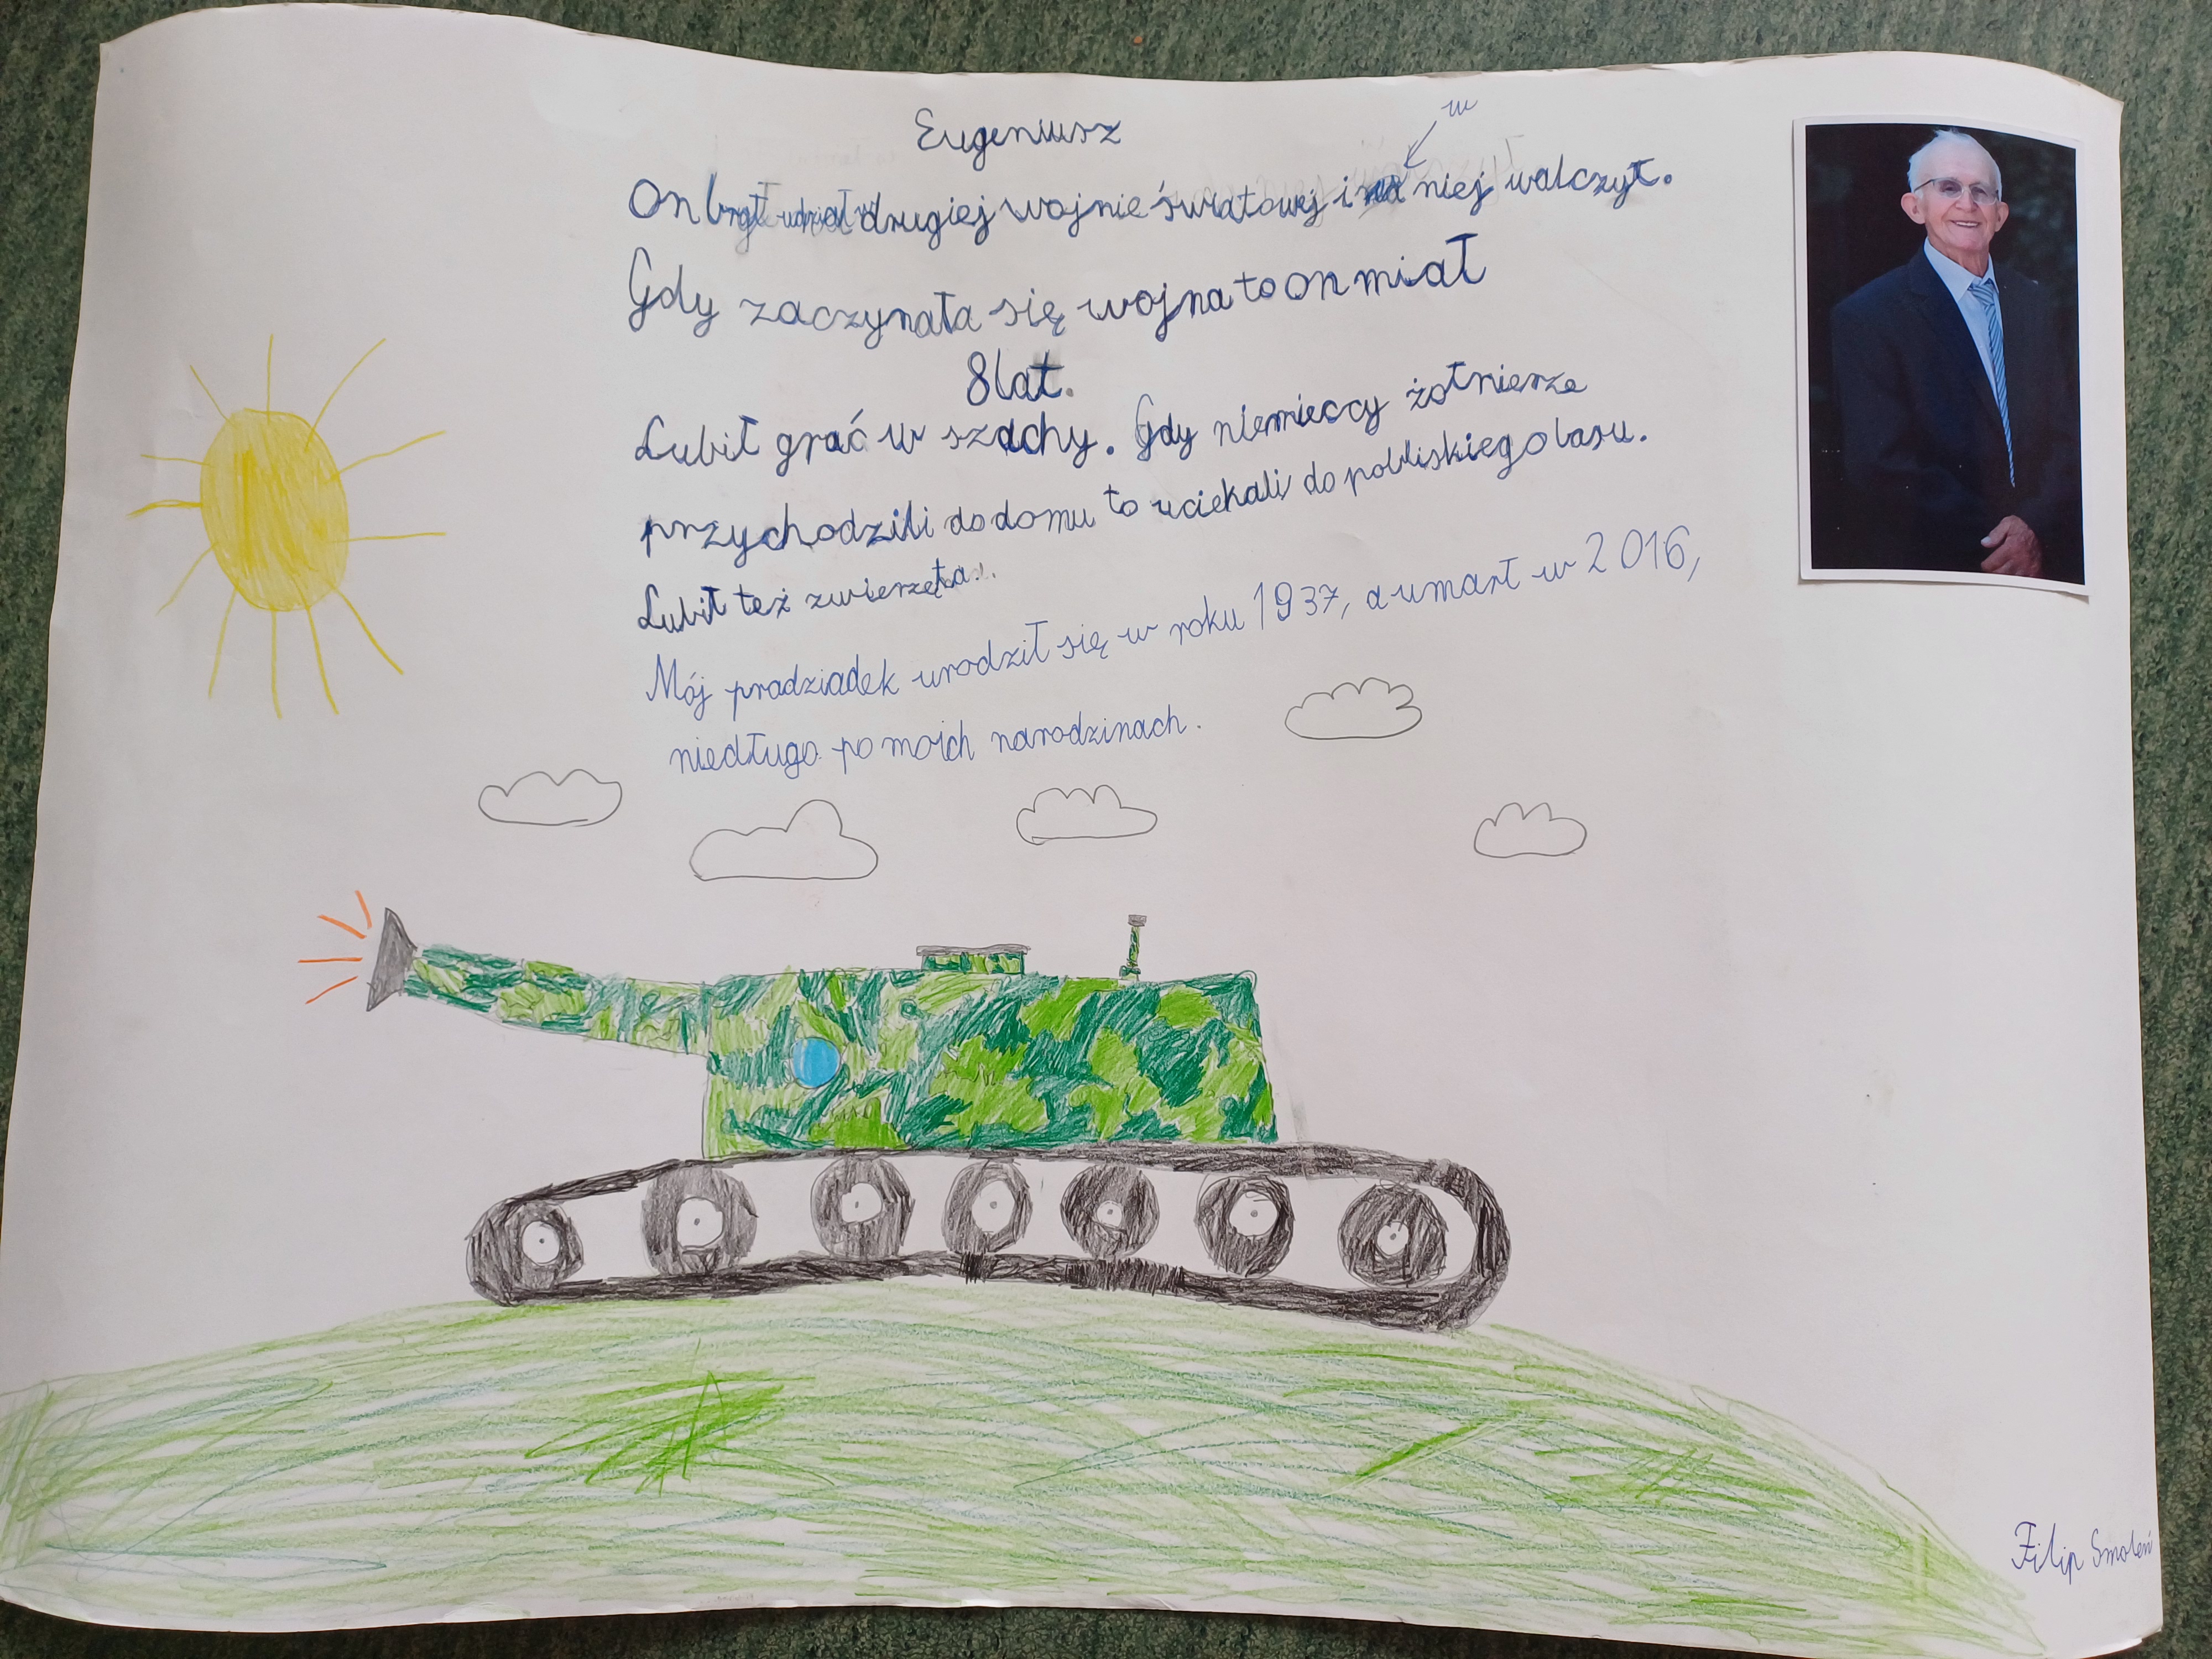 Eugeniusz
w
On brał udział w drugiej wojnie światowej i na niej walczył.
Gdy zaczynała się wojna to on miał
8 lat.
Lubił grać w szachy. Gdy niemieccy żołnierze
przychodzili do domu to uciekali do pobliskiego lasu.
Lubił też zwierzęta.
Mój pradziadek urodził się w roku 1937, a umarł w 2016,
niedługo po moich narodzinach.
Filip Smoleń